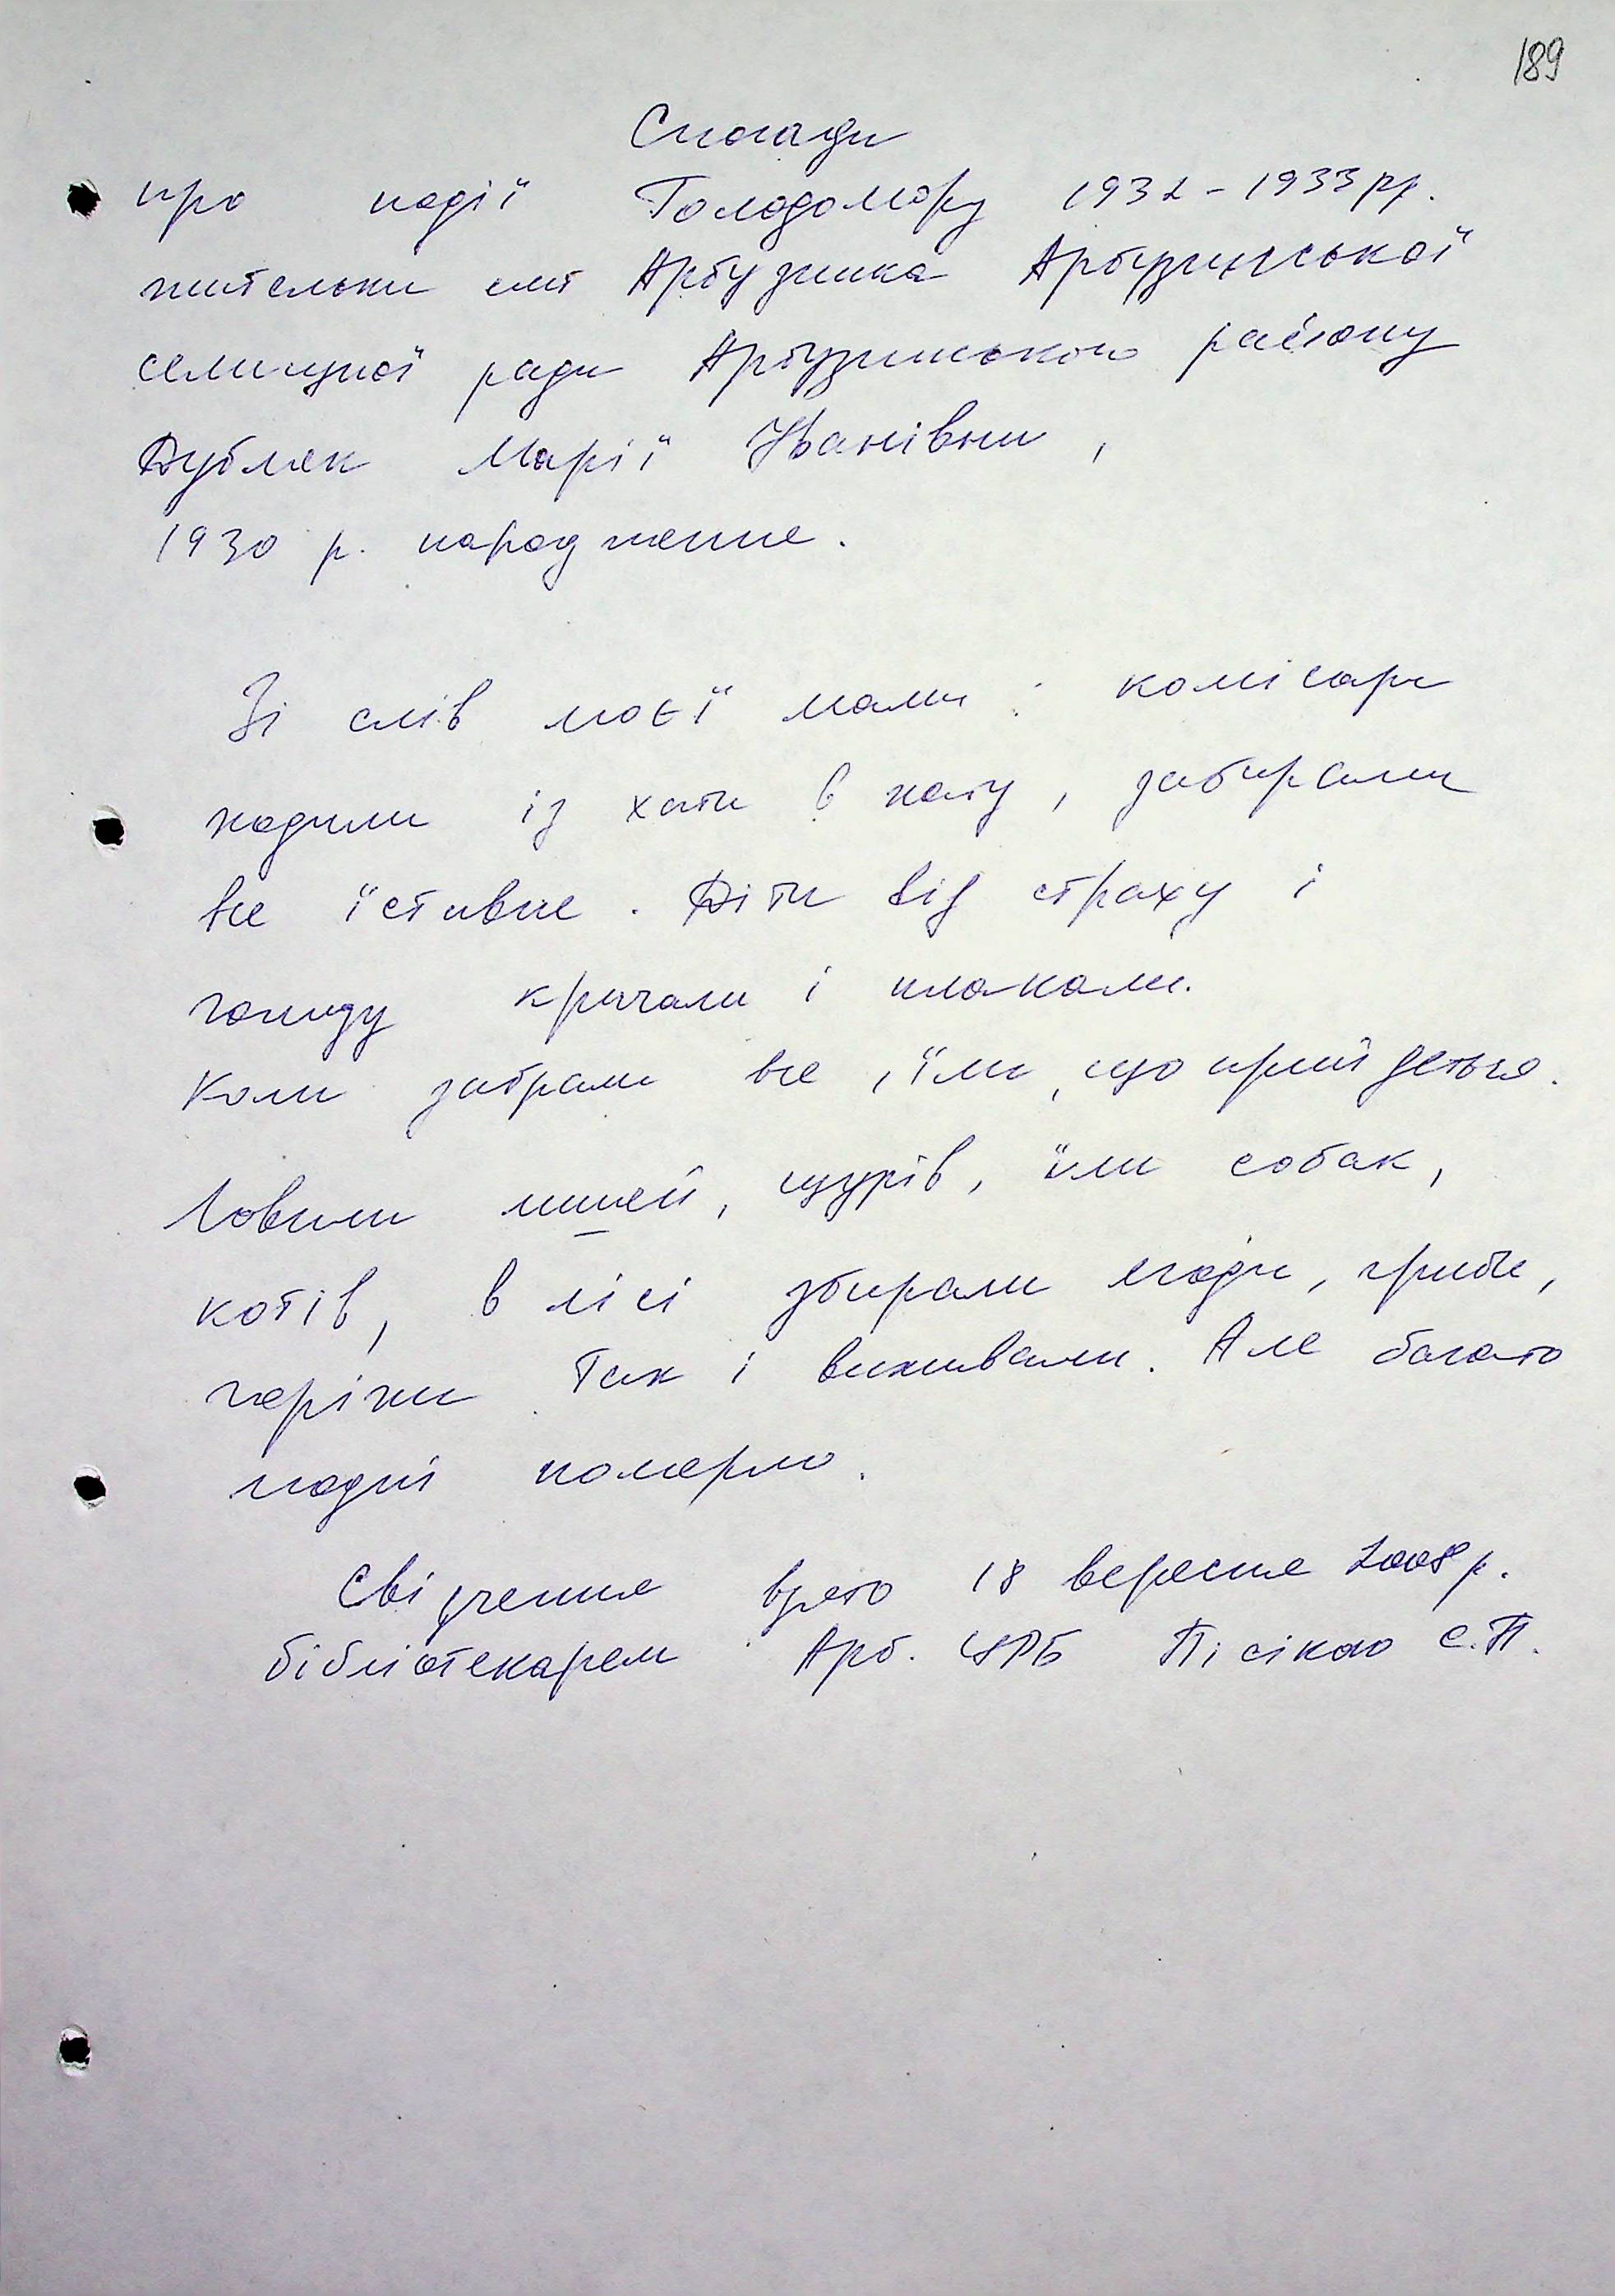 189
Спогади
про події Голодомору 1932-1933 рр.
жительки смт Арбузинка Арбузинської
селищної ради Арбузинського району
Дубляк Марії Іванівни,
1930 р. народження.
Зі слів моєї мами: комісари
ходили із хати в хату, забирали
все їстивне. Діти від страху і
голоду кричали і плакали.
Коли забрали все, їли, що прийдеться.
Ловили мишей, щурів, їли собак,
котів, в лісі збирали ягоди, гриби,
горіхи. Так і виживали. Але багато
людей померло.
Свідчення взято 18 вересня 2008 р.
бібліотекарем Арб. ЦРБ Пісікою Є.П.